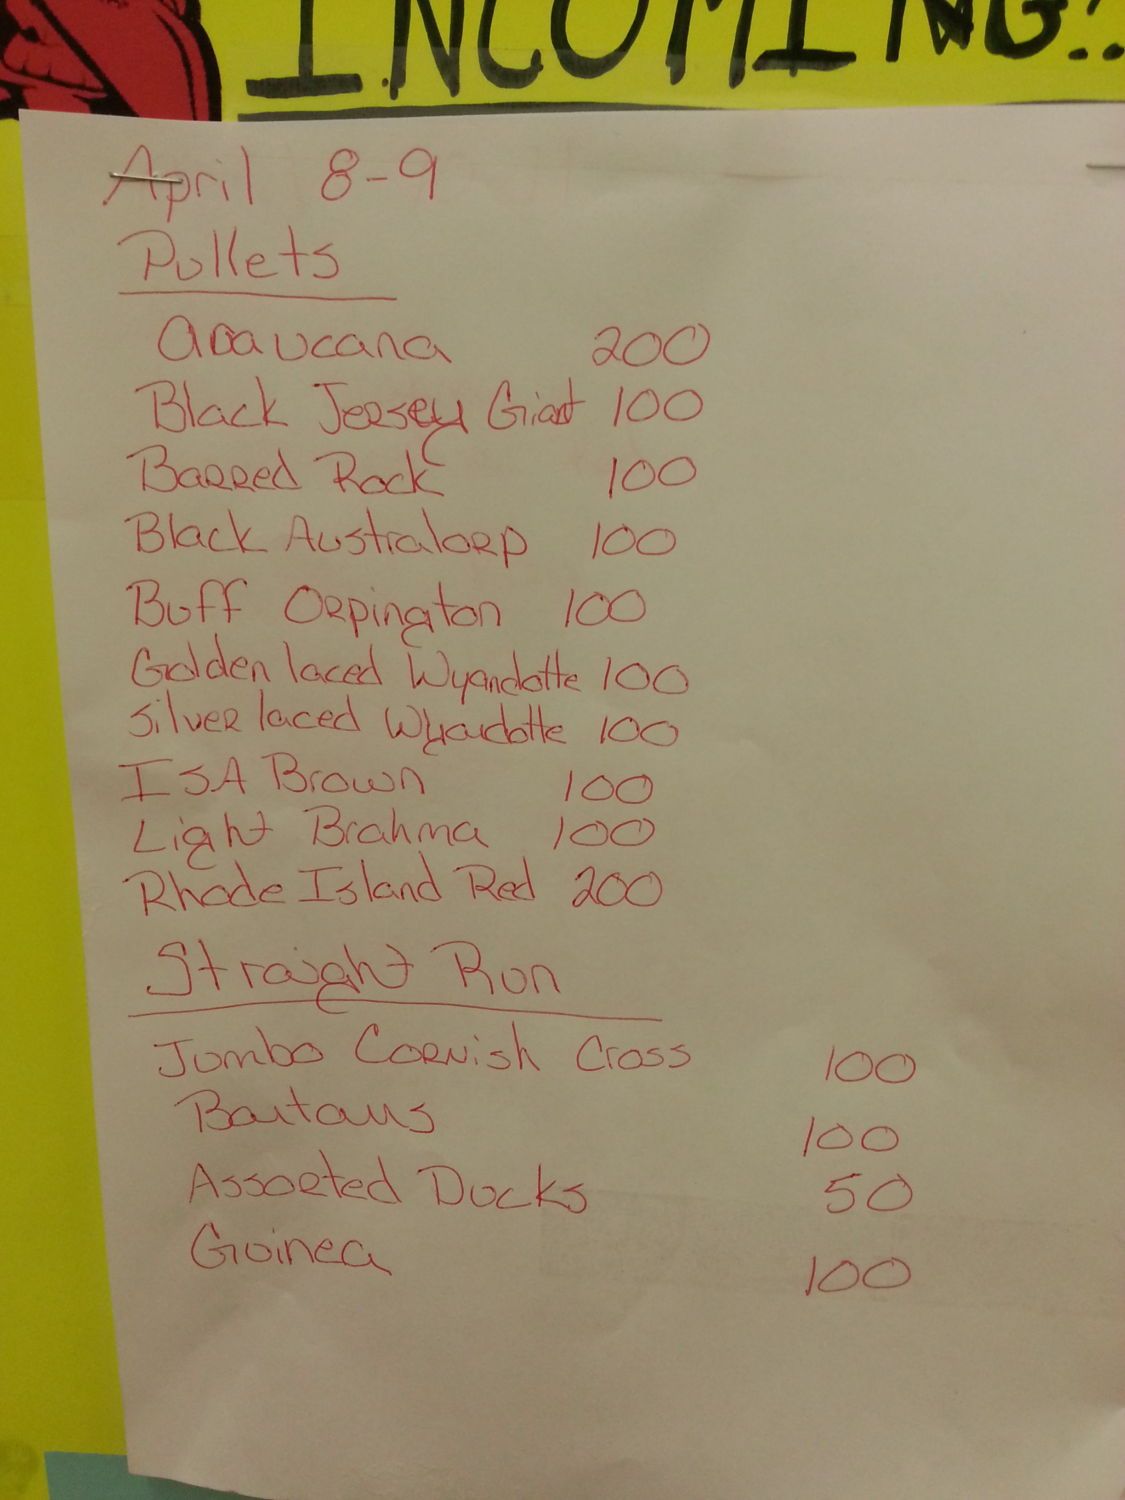 INCOMING!!
April 8-9
Pullets
Araucana 200
Black Jersey Giant 100
Barred Rock 100
Black Australorp 100
Buff Orpington 100
Golden laced Wyandotte 100
Silver laced Wyandotte 100
ISA Brown 100
Light Brahma 100
Rhode Island Red 200
Straight Run
Jumbo Cornish Cross 100
Bantams 100
Assorted Ducks 50
Guinea 100